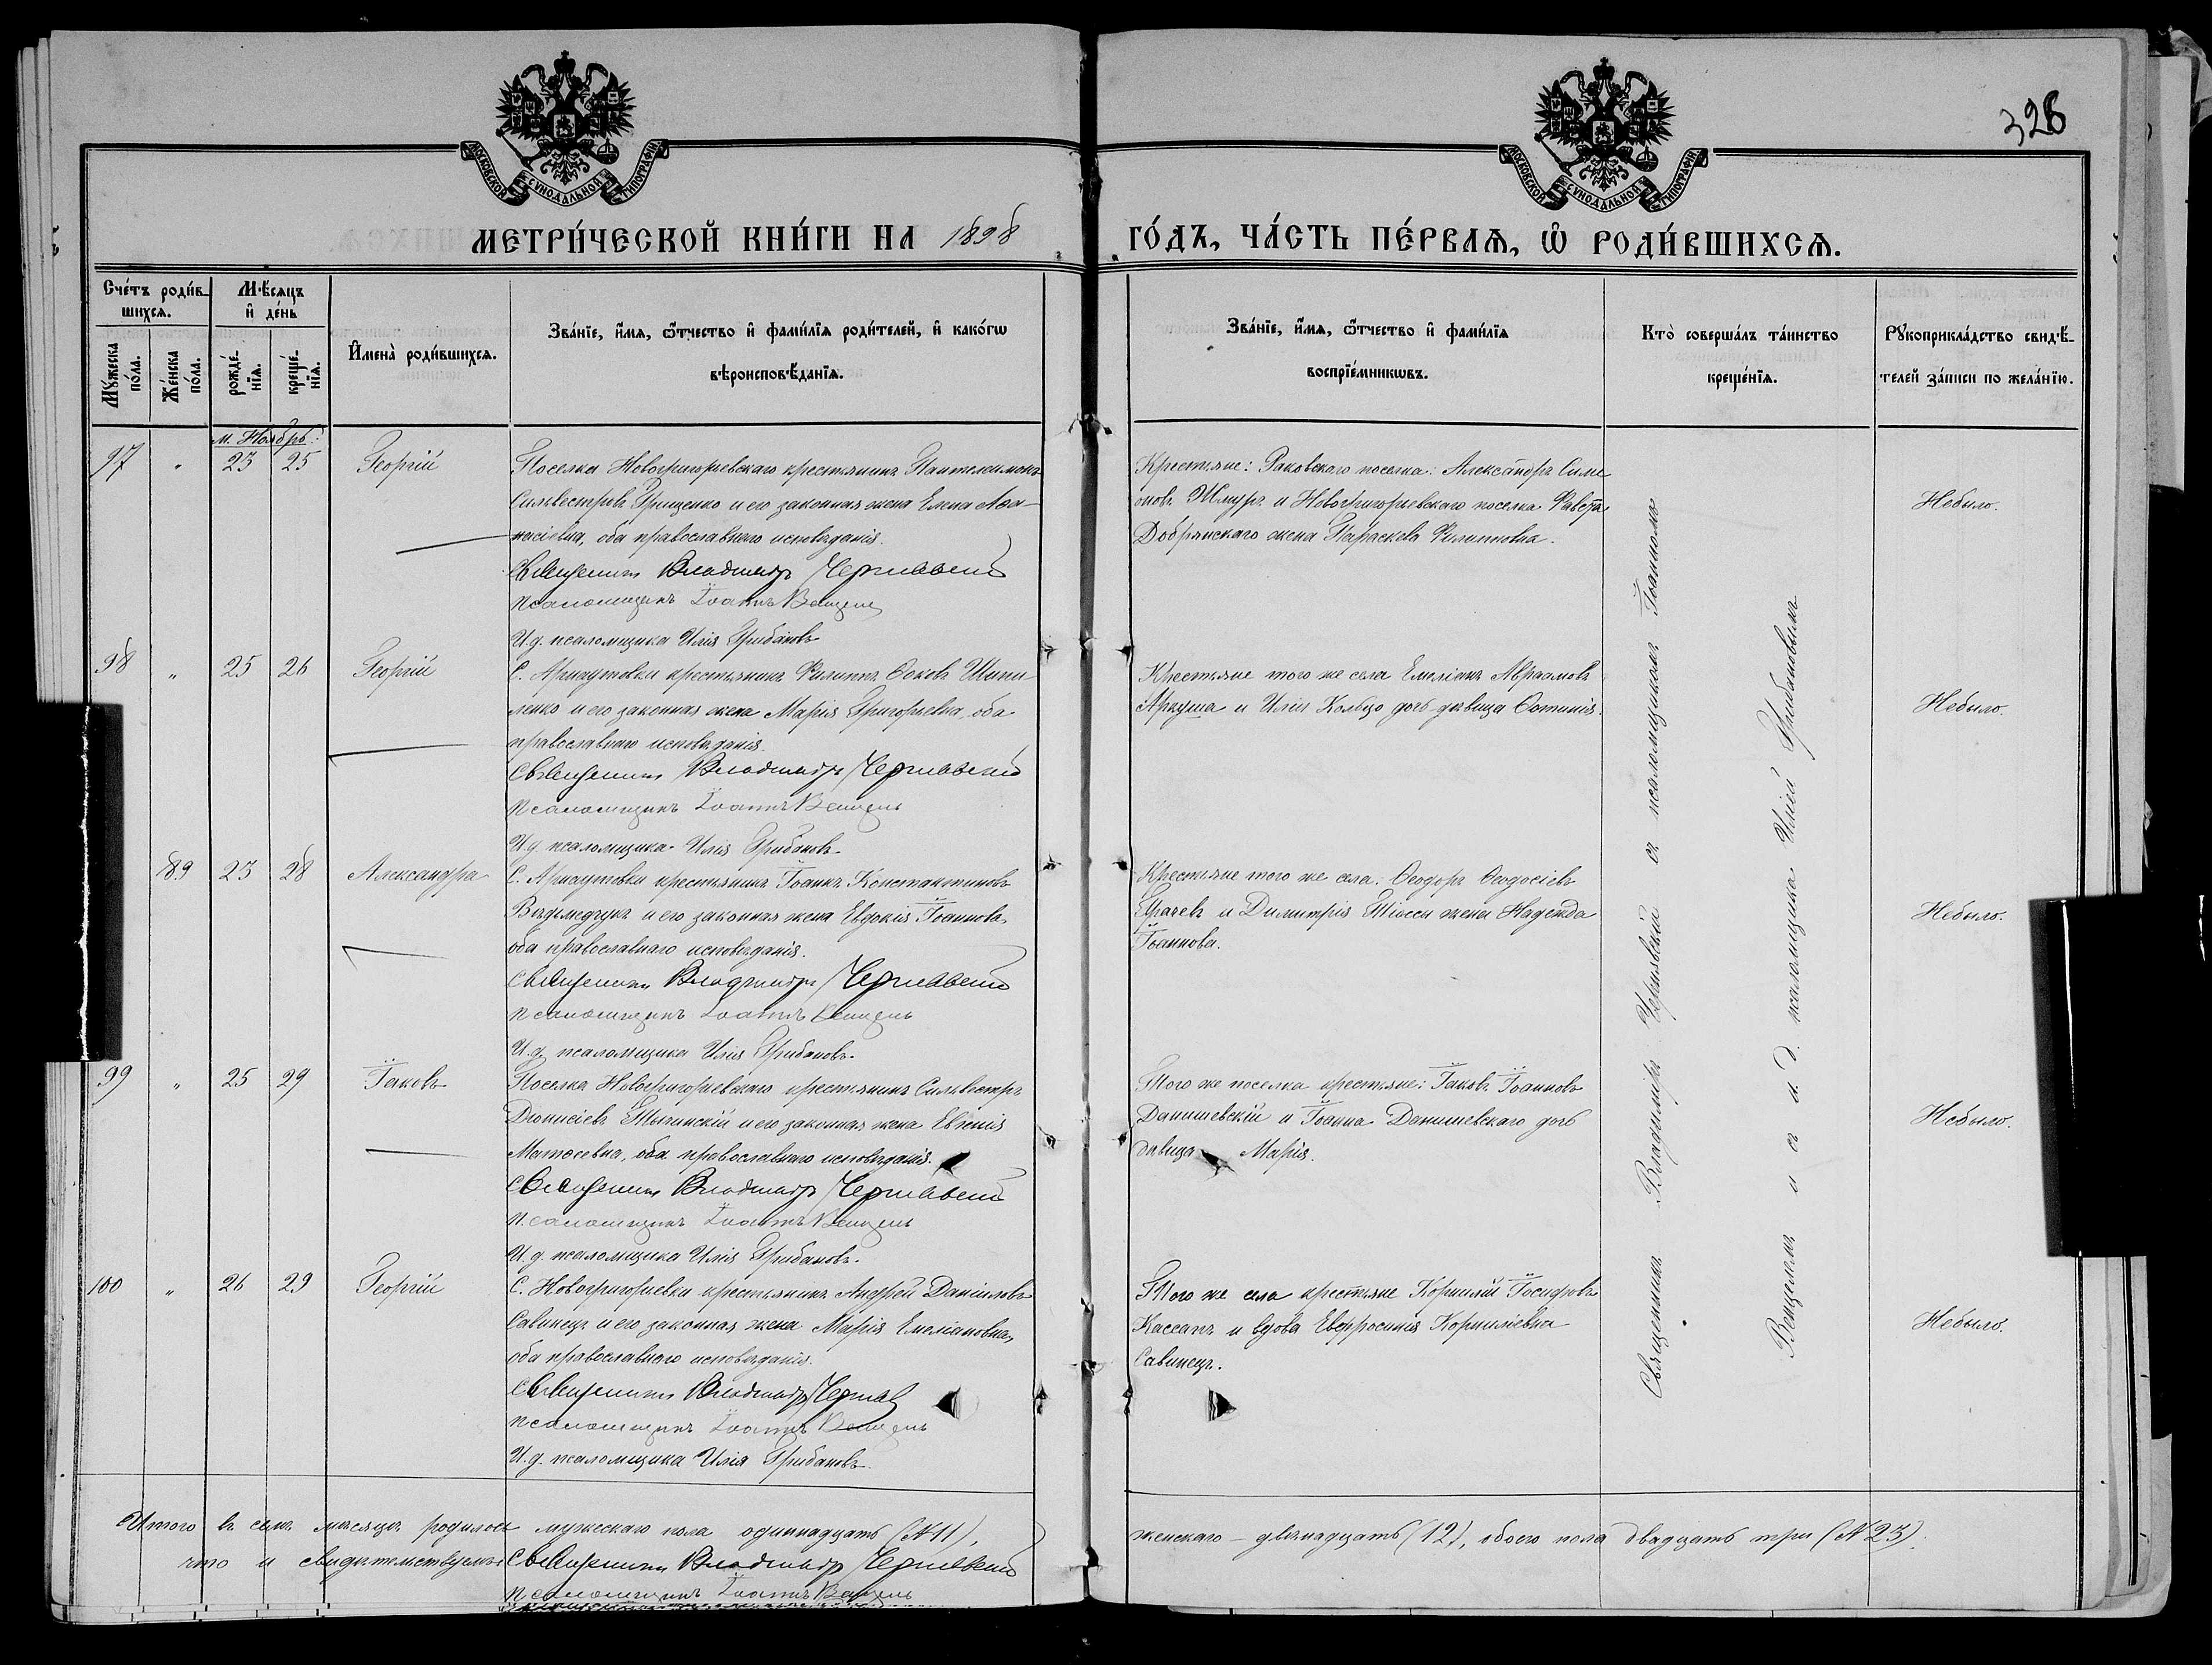 326
МОСКОВСКОЙ СУНОДАЛЬНОЙ ТИПОГРАФІИ
МОСКОВСКОЙ СУНОДАЛЬНОЙ ТИПОГРАФІИ
МЕТРИ́ЧЕСКОЙ КНИ́ГИ НА 1898
ГО́ДЪ, ЧА́СТЬ ПЕ́РВАѦ, Ѽ РОДИ́ВШИХСѦ.
Сче́тъ роди́в-
шихсѧ.
Мꙋжеска по́ла.
Же́нска по́ла.
Мѣ́сяцъ и҆ де́нь
рожде́-нїѧ.
креще́-нїѧ.
И҆мена̀ роди́вшихсѧ.
Зва́нїе, и҆́мѧ, ѻ҆́тчество и҆ фами́лїѧ роди́телей, и҆ како́гѡ
вѣроисповѣ́данїѧ.
Зва́нїе, и҆́мѧ, ѻ҆́тчество и҆ фами́лїѧ
воспрїе́мникѡвъ.
Кто̀ соверша́лъ та́инство
креще́нїѧ.
Рꙋкоприкла́дство свидѣ́-
телей за́писи по жела́нїю.
м. Ноябрь:
97 " 23 25 Георгій
Поселка Новогригорьевскаго крестьянинъ Пантелеимонъ
Сильвестровъ Грищенко и его законная жена Елена Аѳа-
насіевна, оба православнаго исповѣданія.
Священникъ Владиміръ Чернявскій
псаломщикъ Іоаннъ Венцель
И.д. псаломщика Илія Грибановъ
Крестьяне: Раковскаго поселка: Александръ Симе
оновъ Жмуръ и Новогригорьевскаго поселка
Добрянскаго жена Параскева Филипповна.
Небыло.
98 " 25 26 Георгій
С. Арнаутовки крестьянинъ Филиппъ Ѳоковъ Шпи-
ленко и его законная жена Марія Григорьевна, оба
православнаго исповѣданія.
Священникъ Владиміръ Чернявскій
псаломщикъ Іоаннъ Венцель
И.д. псаломщика Илія Грибановъ
Крестьяне того же села Емеліанъ Авраамовъ
Аркуша и Иліи Кольцо дочь дѣвица Фотинія.
Небыло.
89 23 28 Александра
С. Арнаутовки крестьянинъ Іоаннъ Константиновъ
и его законная жена Евдокія Іоаннова,
оба православнаго исповѣданія.
Священникъ Владиміръ Чернявскій
псаломщикъ Іоаннъ Венцель
И.д. псаломщика Илія Грибановъ.
Крестьяне того же села: Ѳеодоръ Ѳеодосіевъ
и Димитрія жена Надежда
Іоаннова.
Небыло.
99 " 25 29 Іаковъ
Поселка Новогригорьевскаго крестьянинъ Сильвестръ
Діонисіевъ и его законная жена Евгенія
Матѳеевна, оба православнаго исповѣданія.
Священникъ Владиміръ Чернявскій
псаломщикъ Іоаннъ Венцель
И.д. псаломщика Илія Грибановъ.
Того же поселка крестьяне: Іаковъ Іоанновъ
Данишевскій и Іоанна Данишевскаго дочь
дѣвица Марія.
Небыло.
100 " 26 29 Георгій
С. Новогригорьевки крестьянинъ Андрей Даніиловъ
Савинецъ и его законная жена Марія Емеліановна,
оба православнаго исповѣданія.
Священникъ Владиміръ Черняв
псаломщикъ Іоаннъ Венцель
И.д. псаломщика Илія Грибановъ.
Того же села крестьяне Корнилій
Кассапъ и вдова Евфросинія Корниліевна
Савинецъ.
Небыло.
Священникъ Владиміръ Чернявскій съ псаломщикомъ Іоанномъ
Венцелемъ и съ и. д. псаломщика Иліей Грибановымъ
Итого въ семъ мѣсяцѣ родилось мужескаго пола одиннадцать (№ 11),
женскаго – двѣнадцать (12), обоего пола двадцать три (№ 23).
что и свидѣтельствуемъ Священникъ Владиміръ Чернявскій
псаломщикъ Іоаннъ Венцель